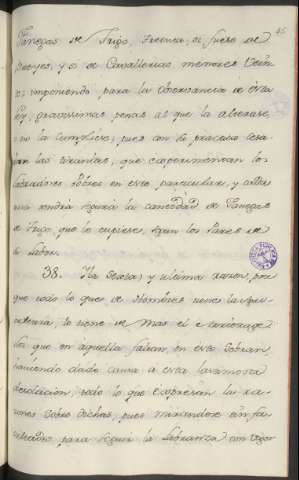 45
Fanegas de Trigo, Treinta, si fuere de
Bueyes, y 8 de Cavallerias menores Vein
te; imponiendo para la observancia de esta
Ley, gravissimas penas al que la alterase,
ò no la cumpliese, pues con lo preciso cesa
rian las tiranias, que experimentan los
Labradores Pobres en este particular, y
una tendrà la cantidad de Fanegas
de Trigo, que le cupiese, segun los Pares de
su Labor.
38. La sexta, y ultima razon, por
que todo lo que de Hombres tiene la Agri
cultura lo tiene de mas el
los que en aquella faltan, en este sobran,
haviendo dado causa à esta lastimosa
desolacion, todo lo que expresan las ra
zones sobre dichas, pues mirandose sin fa
cultades para seguir la Labranza con